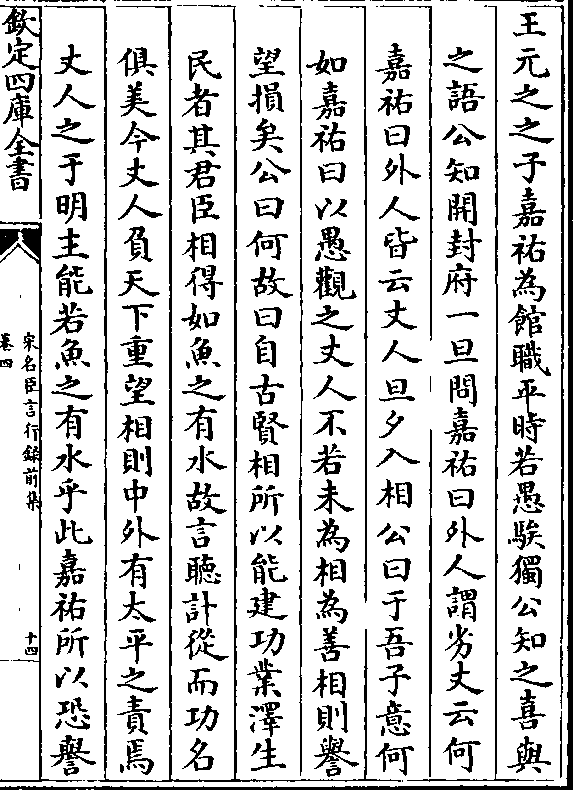 王元之之子嘉祐為館職平時若愚騃獨公知之喜與
之語公知開封府一旦問嘉祐曰外人謂劣丈云何
嘉祐曰外人皆云丈人旦夕入相公曰于吾子意何
如嘉祐曰以愚觀之丈人不若未為相為善相則譽
望損矣公曰何故曰自古賢相所以能建功業澤生
民者其君臣相得如魚之有水故言聽計從而功名
俱美今丈人負天下重望相則中外有太平之責焉
丈人之于明主能若魚之有水乎此嘉祐所以恐譽
欽定四庫全書
宋名臣言行錄前集
卷四
十四